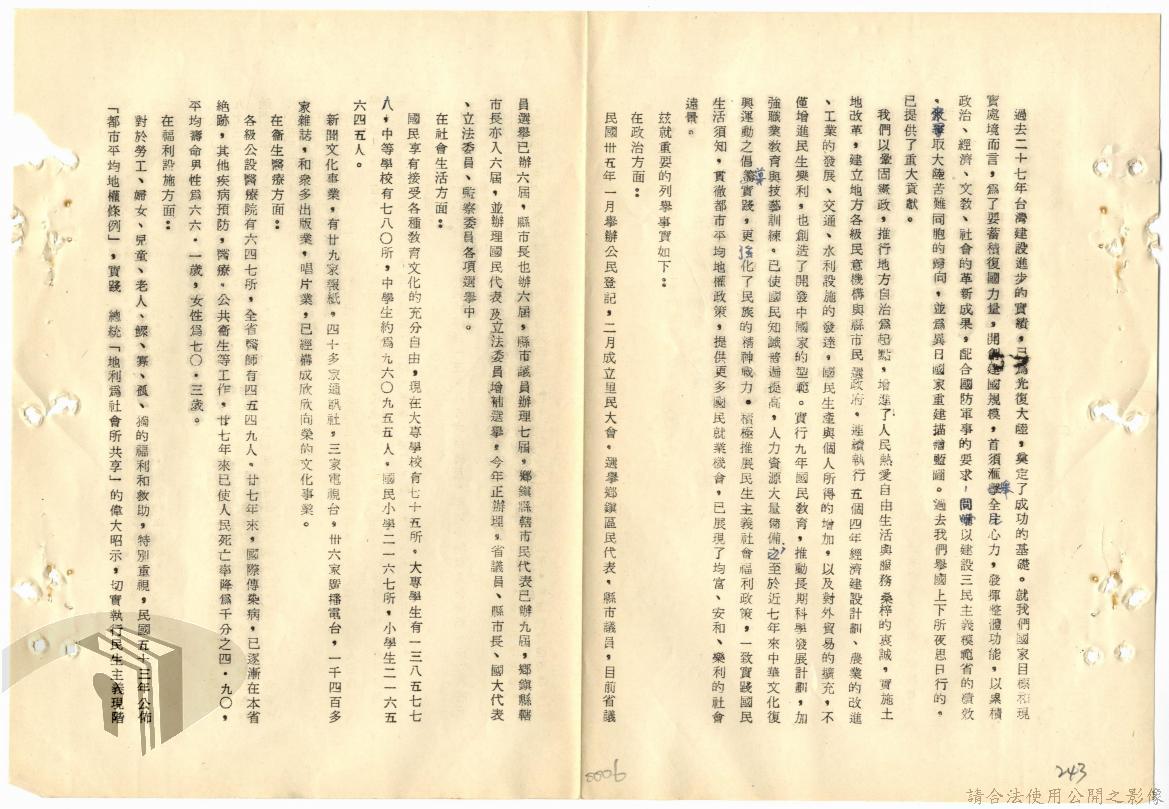 過去二十七年台灣建設進步的實績，已為光復大陸，奠定了成功的基礎。就我們國家目標和現
實處境而言，為了要蓄積復國力量，開創建國規模，首須滙舉全民心力，發揮整體功能，以累積
政治、經濟、文教、社會的革新成果，配合國防軍事的要求，同時以建設三民主義模範省的績效
，來爭取大陸苦難同胞的歸向，並為異日國家重建描繪藍圖。過去我們舉國上下所夜思日行的，
已提供了重大貢獻。
我們以鞏固憲政，推行地方自治為起點，增進了人民熱愛自由生活與服務桑梓的衷誠，實施土
地改革，建立地方各級民意機構與縣市民選政府。連續執行五個四年經濟建設計劃、農業的改進
、工業的發展、交通、水利設施的發達，國民生產與個人所得的增加，以及對外貿易的擴充，不
僅增進民生樂利，也創造了開發中國家的型範。實行九年國民教育，推動長期科學發展計劃，加
強職業教育與技藝訓練。已使國民知識普遍提高，人力資源大量儲備之至於近七年來中華文化復
興運動之倡導實踐，更強化了民族的精神戰力。積極推展民生主義社會福利政策，一致實踐國民
生活須知，貫徹都市平均地權政策，提供更多國民就業機會，已展現了均富、安和、樂利的社會
遠景。
玆就重要的列舉事實如下：
在政治方面：
民國卅五年一月舉辦公民登記，二月成立里民大會。選舉鄉鎮區民代表，縣市議員，目前省議
員選舉已辦六屆，縣市長也辦六屆，縣市議員辦理七屆，鄉鎮縣轄市民代表已辦九屆，鄉鎮縣轄
市長亦入六屆，並辦理國民代表及立法委員增補選舉，今年正辦理，省議員、縣市長、國大代表
、立法委員、監察委員各項選舉中。
在社會生活方面：
國民享有接受各種教育文化的充分自由，現在大專學校有七十五所。大專學生有一三八五七七
人，中等學校有七八〇所，中學生約為九六〇九五五人，國民小學二一六七所，小學生二一六五
六四五人。
新聞文化事業，有廿九家報紙，四十多家通訊社，三家電視台，卅六家廣播電台，一千四百多
家雜誌，和衆多出版業，唱片業，已經構成欣欣向榮的文化事業。
在衞生醫療方面：
各級公設醫療院有六四七所，全省醫師有四五四九人。廿七年來，國際傳染病，已逐漸在本省
絕跡，其他疾病預防，醫療。公共衞生等工作，廿七年來已使人民死亡率降為千分之四．九〇，
平均壽命男性為六六．一歲，女性為七〇．三歲。
在福利設施方面：
對於勞工、婦女、兒童、老人、鰥、寡、孤、獨的福利和救助，特別重視，民國五十三年公佈
「都市平均地權條例」，實踐　總統「地利為社會所共享」的偉大昭示，切實執行民生主義現階
0006
243
請合法使用公開之影像